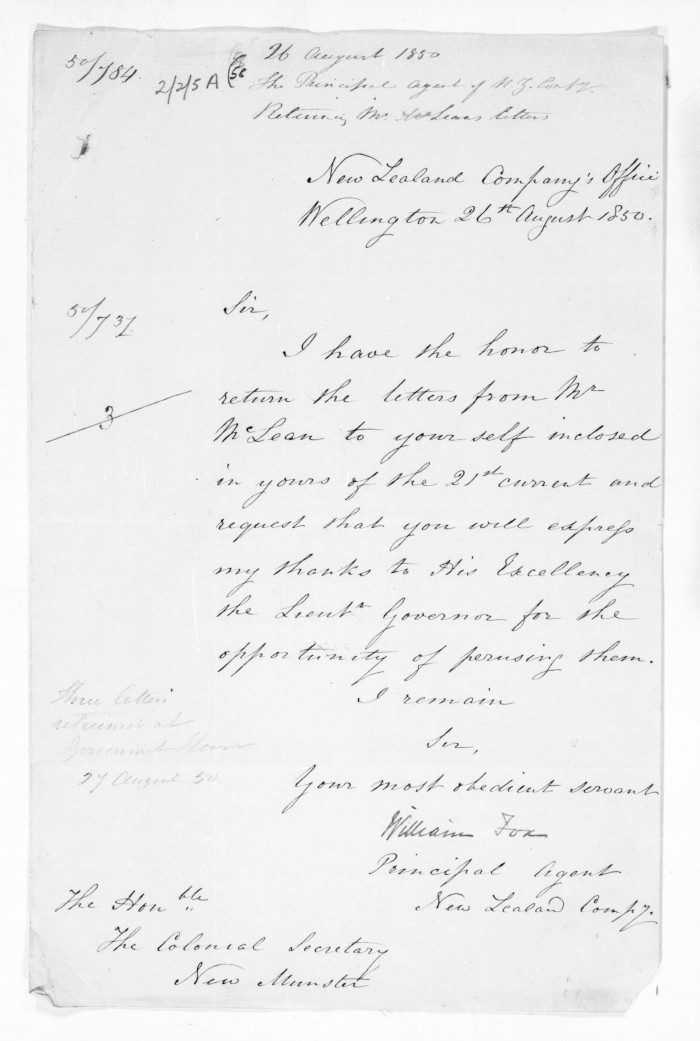 50/784.
2/2/5A (56
26 August 1850
The Principal Agent of N.Z. Compy.
Returning Mr. McLeans letters
New Zealand Company's Office
Wellington 26th August 1850.
50/737.
3
Sir,
I have the honor to
return the letters from Mr
McLean to yourself inclosed
in yours of the 21st current and
request that you will express
my thanks to His Excellency
the Lieutt Governor for the
opportunity of perusing them.
I remain
Sir,
Your most obedient servant
William Fox
Principal Agent
New Zealand Compy.
Three letters
returned at
Government House
27 August 50.
The Honble
The Colonial Secretary
New Munster